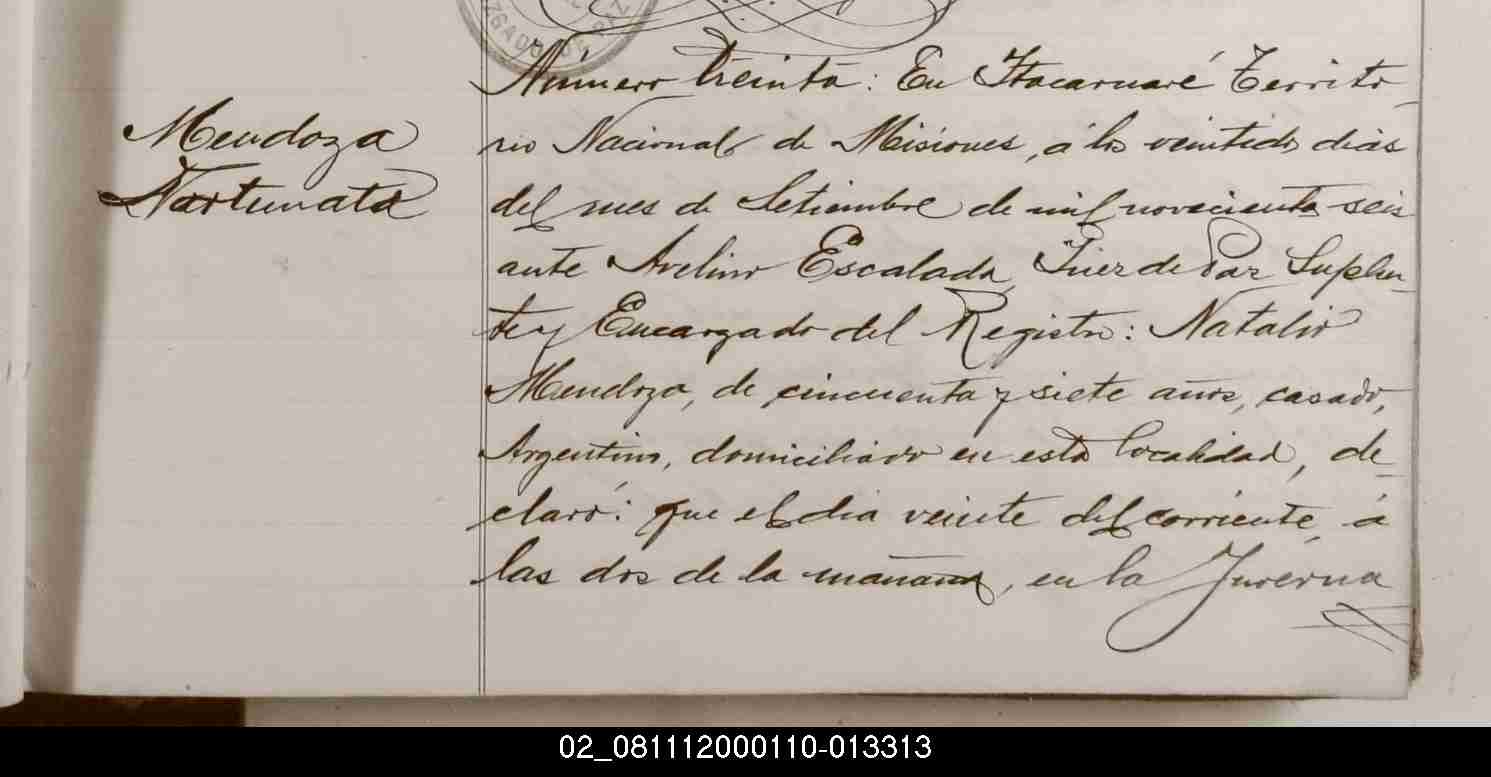 Mendoza
Fortunata
Número treinta: En Itacaruaré Territo-
rio Nacional de Misiones, á los veintidos dias
del mes de Setiembre de mil novecientos seis
ante Avelino Escalada, Juez de Paz Suplen-
te y Encargado del Registro: Natalio
Mendoza, de cincuenta y siete años, casado,
Argentino, domiciliado en esta localidad, de-
claró: que el dia veinte del corriente, á
las dos de la mañana, en la
02_081112000110-013313